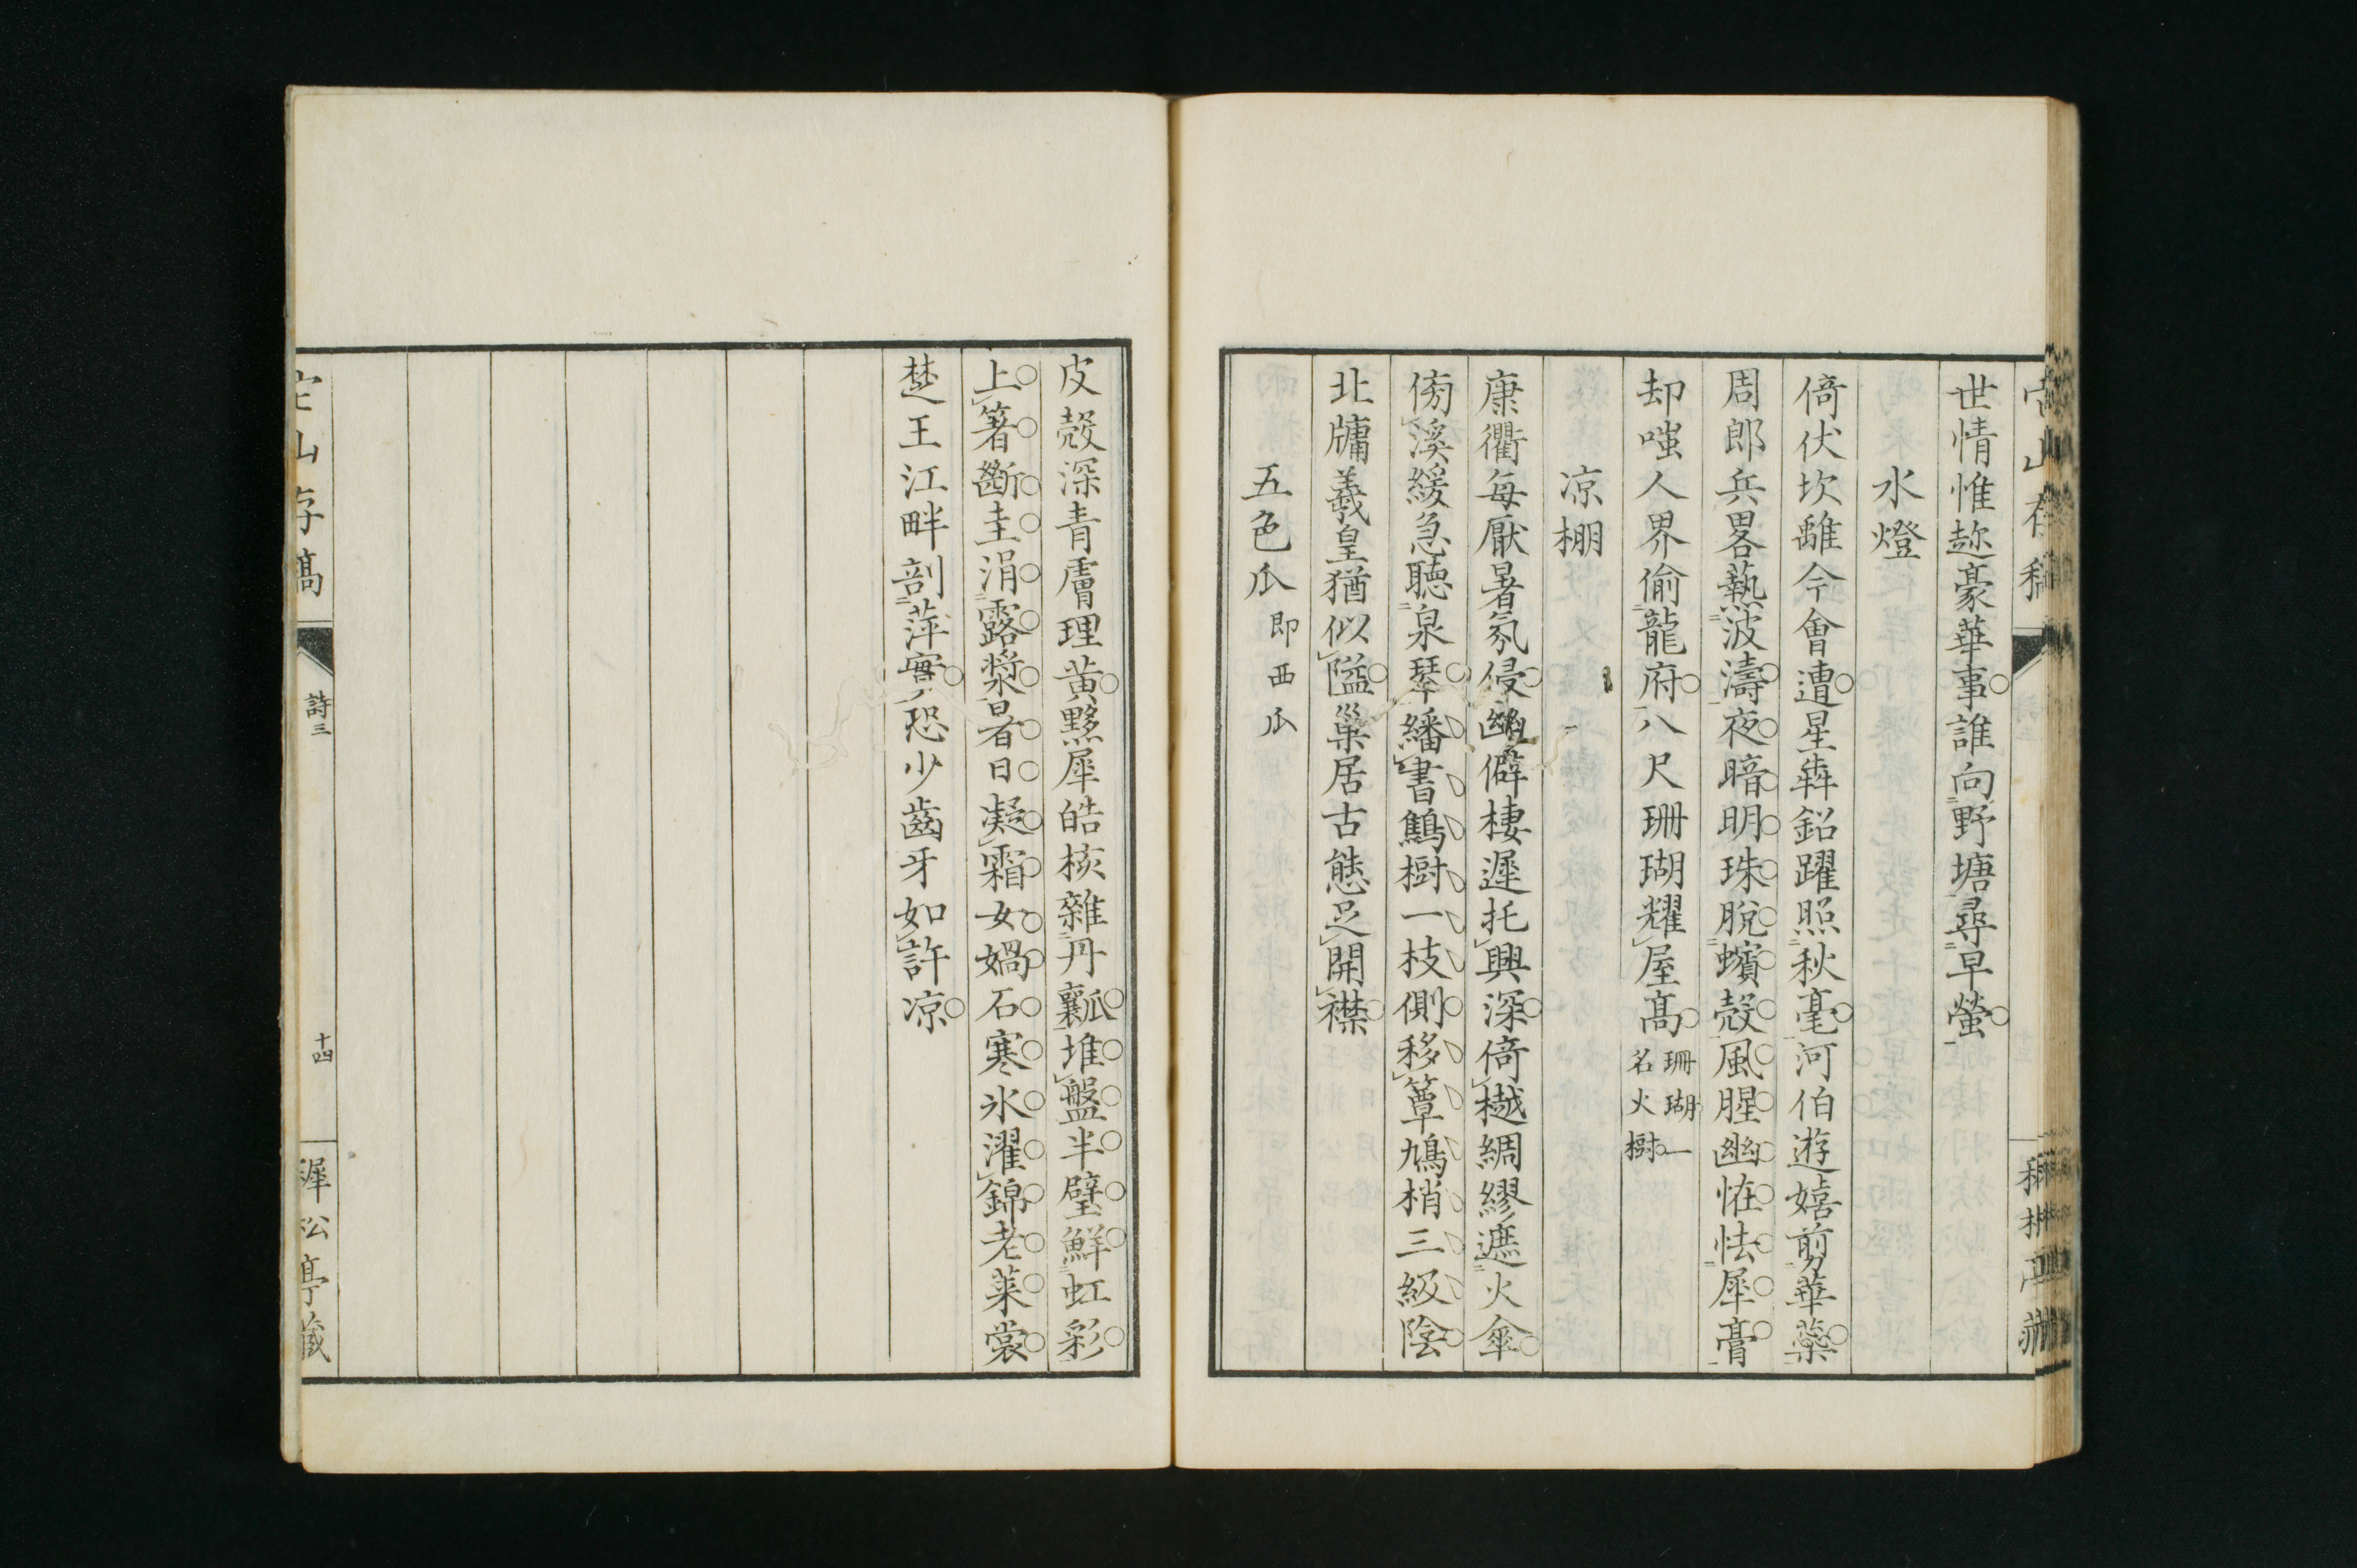 世情惟趂豪華事誰向野塘尋早螢
水燈
倚伏坎離今會遭星犇鉛躍照秋毫河伯遊嬉剪華藥
周郎兵畧爇波濤夜暗明珠脫蠙殼風腥幽恠怯犀膏
却嗤人界偷龍府八尺珊瑚耀屋高珊瑚一名火樹
凉棚
康衢每厭暑氛侵幽僻棲遲托興深倚樾綢繆遮火傘
傍溪緩急聽泉琴繙書鷦樹一枝側移簟鳩梢三級陰
北牗羲皇猶似隘巢居古態足開襟
五色瓜即西瓜
皮殼深青膚理黄黟犀皓核雜丹瓤堆盤半璧鮮虹彩
上箸斷圭涓露漿暑日凝霜女媧石寒氷濯錦老萊裳
楚王江畔剖萍實恐少齒牙如許凉
定山存稿
詩三
十四
稺松亭藏